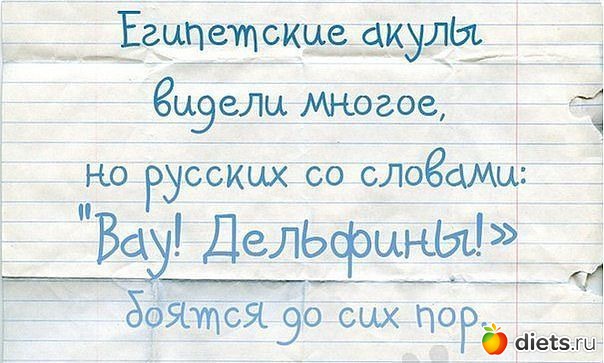 Египетские акулы
видели многое,
но русских со словами:
"Вау! Дельфины!»
боятся до сих пор.
diets.ru